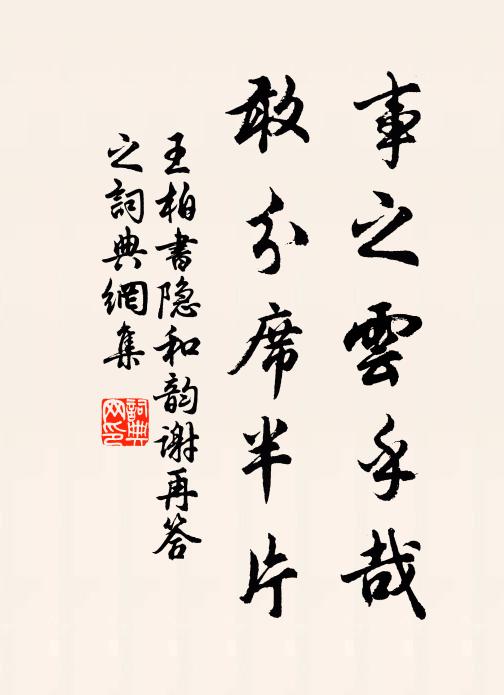 事之雲乎哉
敢分席半片
王柏書隐和韵謝再答
之詞典網集
詞典
网印